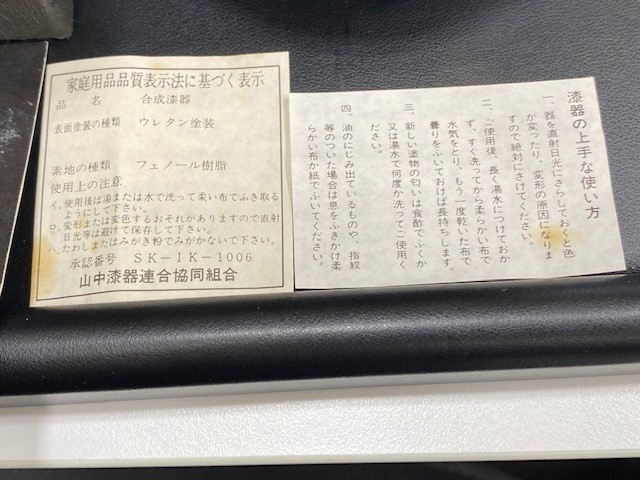 家庭用品品質表示法に基づく表示
品 名 合成漆器
表面塗装の種類 ウレタン塗装
素地の種類 フェノール樹脂
使用上の注意
イ、使用後は湯または水で洗って柔い布でふき取る
ようにして下さい。
ロ、変形または変色するおそれがありますので直射
日光等は避けて保存して下さい。
ハ、たわしまたはみがき粉でみがかないで下さい。
承認番号 SK-IK-1006
山中漆器連合協同組合
漆器の上手な使い方
一、器を直射日光にさらしておくと色
が変ったり、変形の原因になりま
すので絶対にさけてください。
二、ご使用後、長く湯水につけておか
ず、すぐ洗ってから柔らかい布で
水気をとり、もう一度乾いた布で
曇りをふいておけば長持ちします。
三、新しい塗物の匂いは食酢でふくか
又は湯水で何度か洗ってご使用く
ださい。
四、油のにじみ出ているものや、指紋
等のついた場合は息をふきかけ柔
らかい布か紙でふいてください。